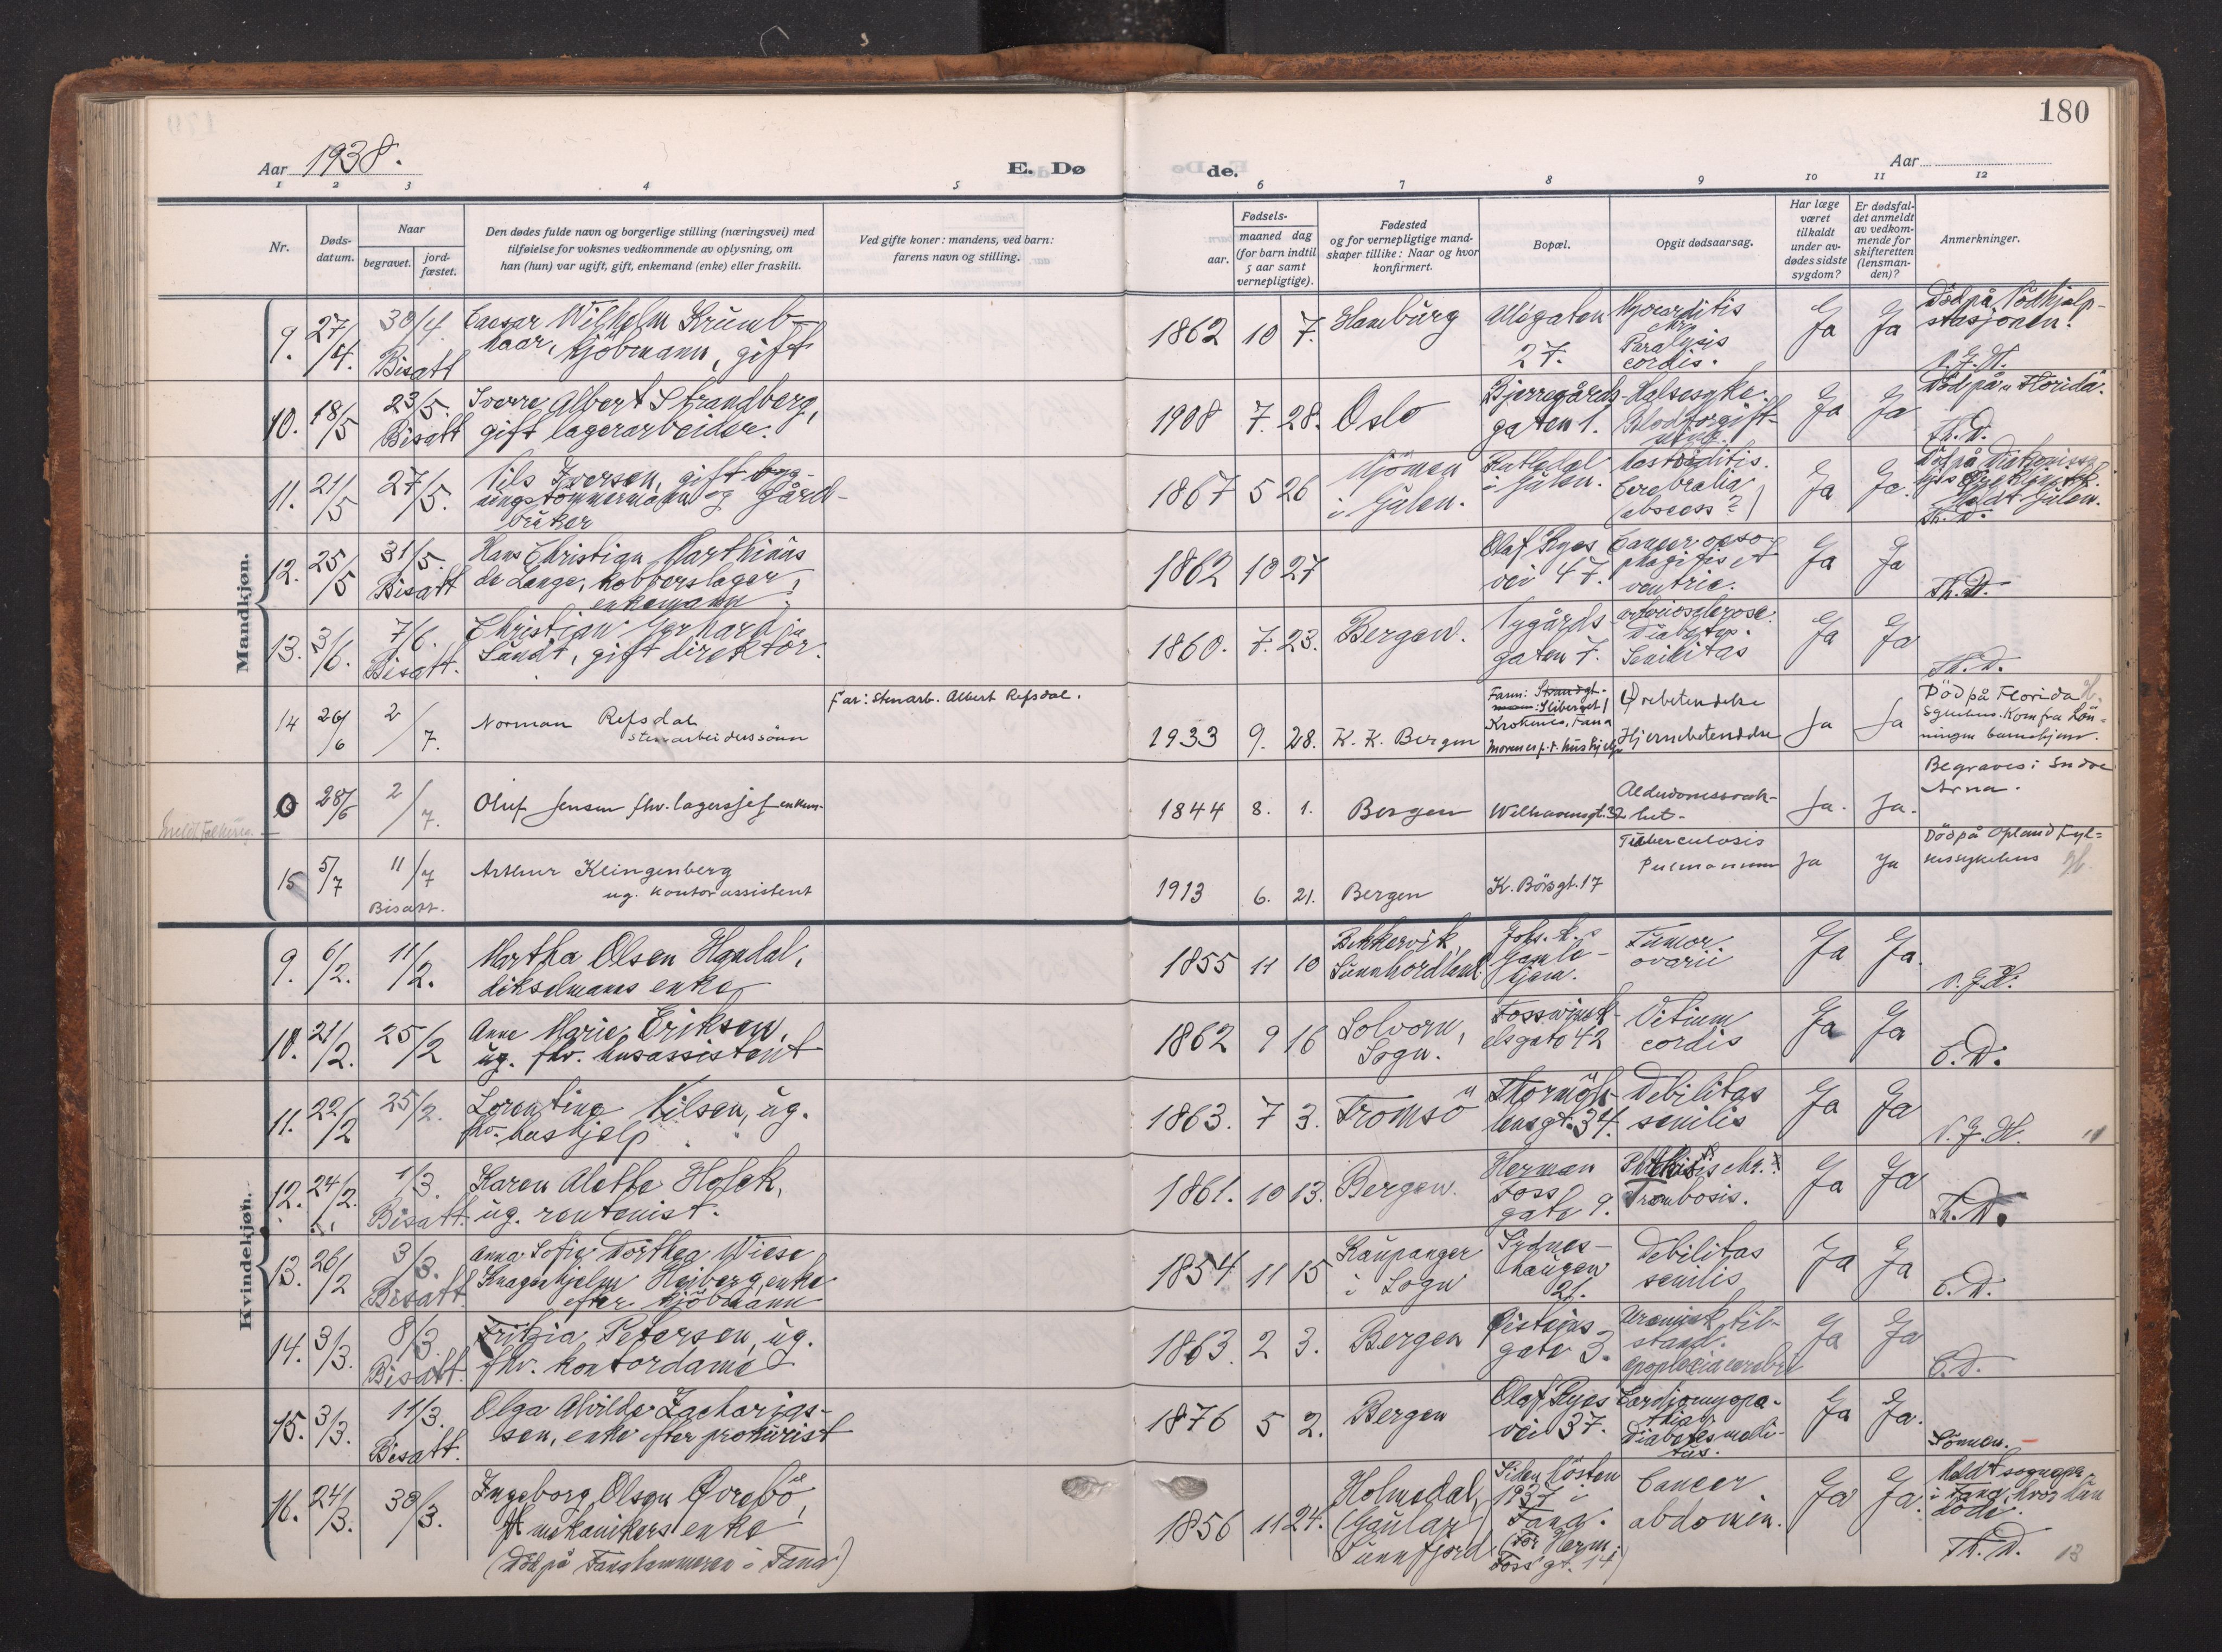 180
Aar 1938.
E. Dø
de.
Aar
1 2 3 4 5 6 7 8 9 10 11 12
Nr.
Døds-
datum.
Naar
begravet.
jord-
fæstet.
Den dødes fulde navn og borgerlige stilling (næringsvei) med
tilføielse for voksnes vedkommende av oplysning, om
han (hun) var ugift, gift, enkemand (enke) eller fraskilt.
Ved gifte koner: mandens, ved barn:
farens navn og stilling.
Fødsels-
aar.
maaned dag
(for barn indtil
5 aar samt
vernepligtige).
Fødested
og for vernepligtige mand-
skaper tillike: Naar og hvor
konfirmert.
Bopæl.
Opgit dødsaarsag.
Har læge
været
tilkaldt
under av-
dødes sidste
sygdom?
Er dødsfal-
det anmeldt
av vedkom-
mende for
skifteretten
(lensman-
den)?
Anmerkninger.
Mandkjøn.
9. 27/4. 30/4 Bisatt
Caesar Wilhelm Krumb-
haar, kjöbmann, gift
1862 10 7. Hamburg
Allégaten
27.
Paralysis
cordis.
Ja Ja
Död på Nödhjelp-
stasjonen.
10. 18/5 23/5. Bisatt
Sverre Albert Strandberg,
gift lagerarbeider.
1908 7. 28. Oslo
Bjerregårds-
gaten 1.
Halsesyke.
Blodforgift-
ning.
Ja Ja
Död på Florida.
Th. D.
11. 21/5 27/5.
Nils Iversen, gift byg-
ningstömmermann og gård-
bruker
1867 5 26
i Gulen.
Rutledal
i Gulen.
Mastoiditis.
Cerebralia
(abscess?)
Ja Ja
Th. D.
12. 25/5 31/5. Bisatt
Hans Christian Marthinus
de Lange, kobberslager,
enkemann
1862 10 27
Olaf Ryes
vei 47.
Cancer oeso-
phagi et
ventric.
Ja Ja
Th. D.
13. 3/6. 7/6. Bisatt.
Christian Gerhard
Sundt, gift direktör.
1860. 7. 23. Bergen.
Nygårds-
gaten 7.
Arteriosclerose.
Diabetes.
Senilitas
Ja Ja
Th. D.
14 26/6 2/7.
Norman Refsdal
stenarbeiderssönn
Far: stenarb. Albert Refsdal.
1933 9. 28. K. K. Bergen
Krokenes, Fana
Moren er p.t. hushjelp
Örebetendelse
Hjernebetendelse
Ja Ja
Död på Florida
sykehus. Kom fra Lön-
ningen barnehjem.
0 28/6 2/7.
Oluf Jensen fhv. lagersjef enkem.
1844 8. 1. Bergen
Welhavensgt. 32
Alderdomssvak-
het.
Ja. Ja.
Begraves i Indre
Arna.
15 5/7 11/7 Bisatt.
Arthur Klingenberg
ug. kontorassistent
1913 6. 21. Bergen
K. Börsgt. 17
Tuberculosis
Pulmonum
Ja Ja
Död på Opland Fyl=
kessykehus
Kvindekjøn.
9. 6/2. 11/2.
Martha Olsen Hardal,
enke
1855 11 10
Bekkervik,
Sunnhordland.
Gamle-
hjem.
Tumor
ovarii
Ja Ja.
10. 21/2. 25/2
Anne Marie Eriksen,
ug. fhv. husassistent
1862 9 16
Solvorn,
Sogn.
Fosswinck-
elsgate 42
Vitium
cordis
Ja Ja
C. D.
11. 22/2 25/2.
Lorentine Nilsen, ug.
fhv. hushjelp
1863. 7 3. Tromsö
Thormöh-
lensgt. 34.
Debilitas
senilis
Ja Ja
12. 24/2. 1/3. Bisatt.
Karen Alette Holck,
ug. rentenist.
1861. 10 13. Bergen.
Herman
Foss
gate 9.
Trombosis.
Ja Ja
Th. D.
13. 26/2 3/3. Bisatt.
Anna Sofie Dorthea Wiese
Knagenhjelm Heiberg, enke
efter kjöbmann
1854 11 15
Kaupanger
i Sogn
Sydnes-
haugen
21.
Debilitas
senilis
Ja Ja
C. D.
14. 3/3. 8/3. Bisatt.
Fritzia Petersen, ug.
fhv. kontordame
1863. 2 3. Bergen
gate 3.
Uremisk til-
stand.
Apoplexia cerebri
Ja Ja
C. D.
15. 3/3. 11/3. Bisatt.
Olga Alvilde Zacharias-
sen, enke efter prokurist
1876 5 2. Bergen
Olaf Ryes
vei 37.
Cardiomyopa-
thia
Diabetes melli-
tus.
Ja Ja.
16. 24/3. 30/3.
Ingeborg Olsen Övrebö,
mekanikers enke
(Död på Fanahammeren i Fana)
1856 11 24.
Holmedal,
(Gaular)
Sunnfjord
Siden hösten
1937 i
Fana.
(För Herm.
Foss' gt. 14)
Cancer
abdomin.
Ja Ja.
Meldt sognepr.
i Fana, hvor hun
döde.
Th. D.
13